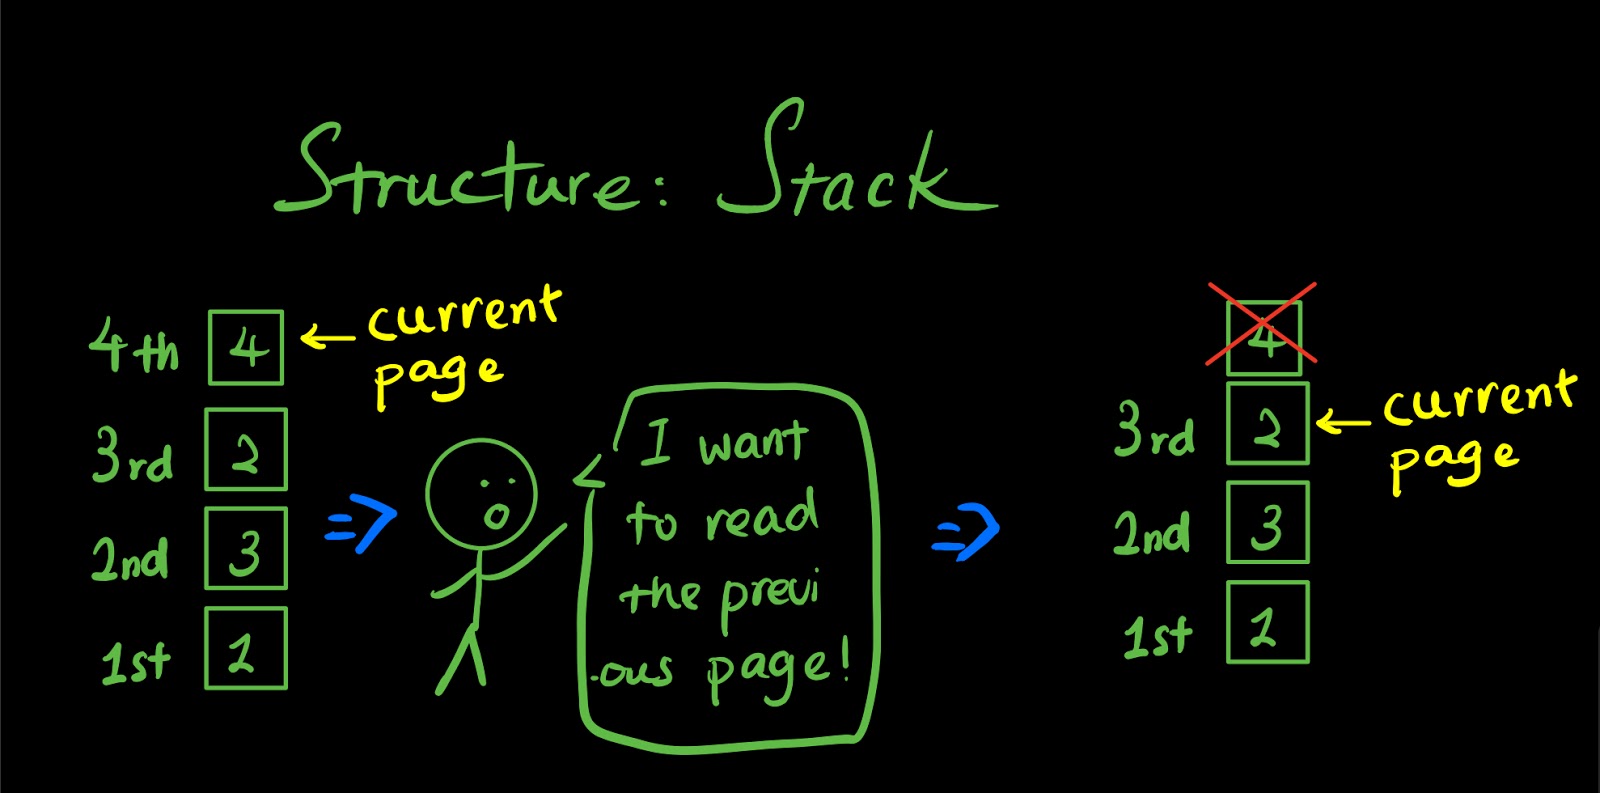 Structure: Stack
4th 4 ← current
page
3rd 2
2nd 3
1st 1
⇒
I want
to read
the previ
ous page!
⇒
4
3rd 2 ← current
page
2nd 3
1st 1